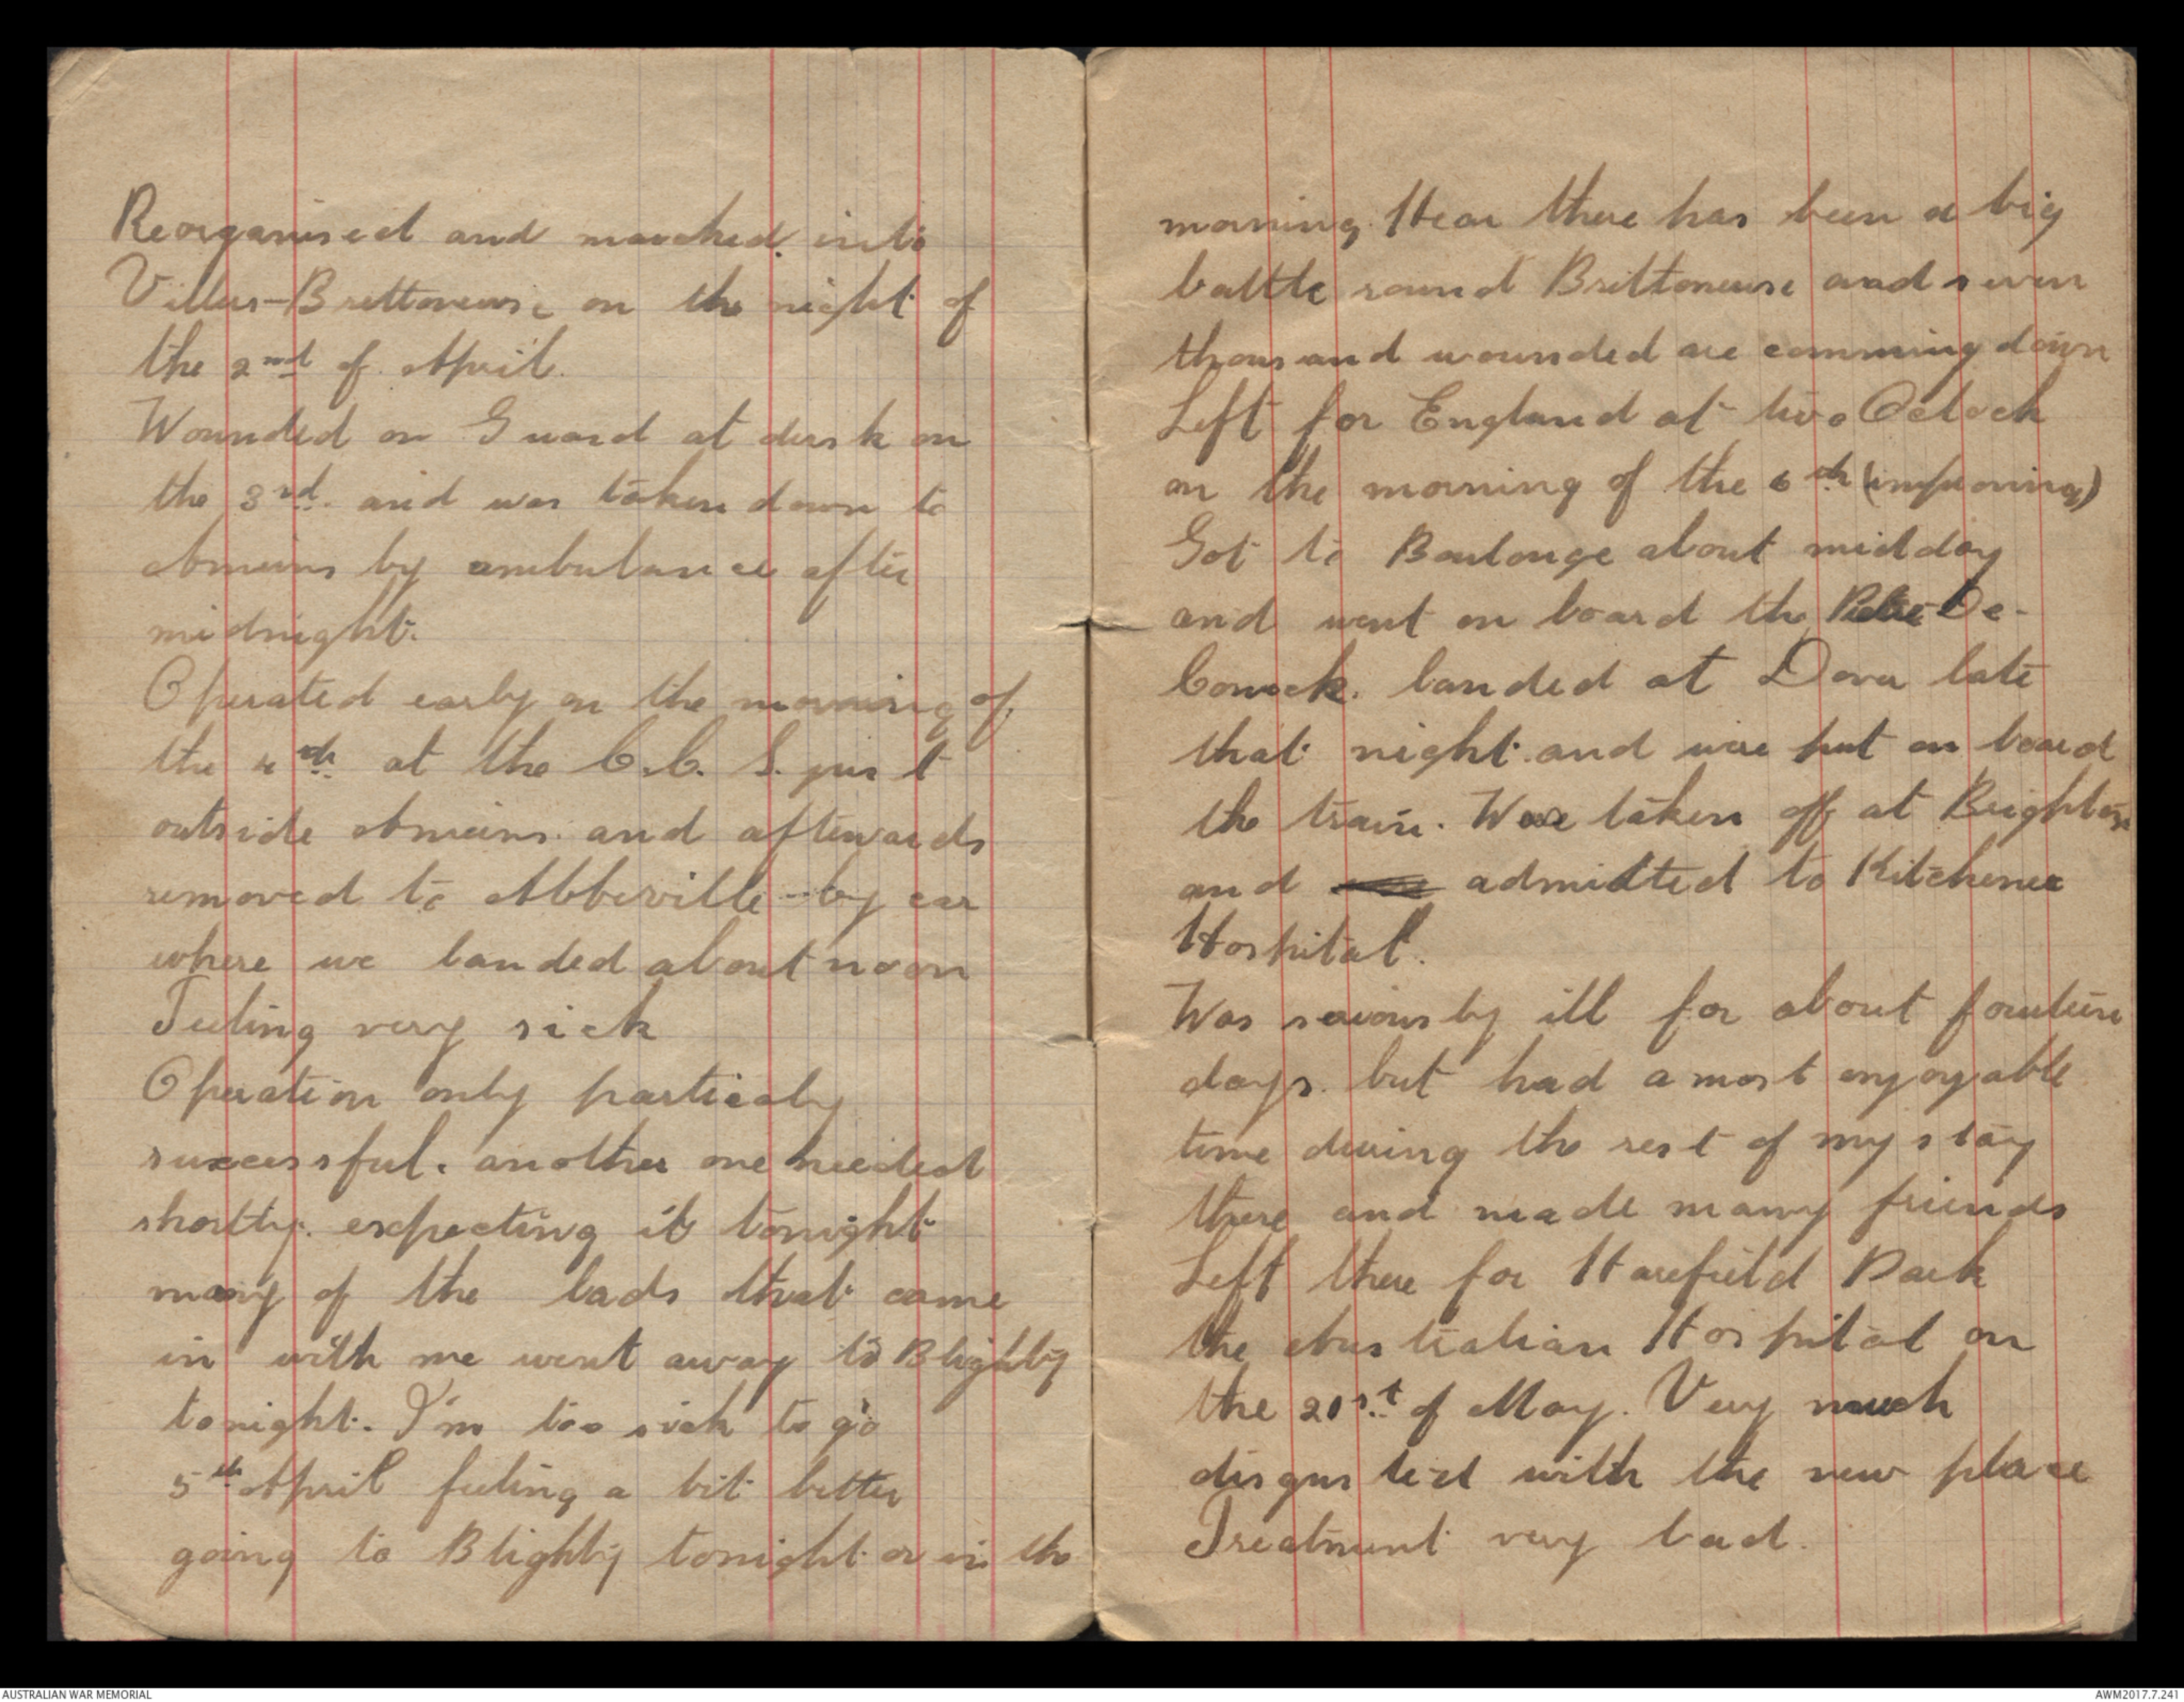 Reorganised and marched into
Villers-Brettoneuse on the night of
the 2nd of April.
Wounded on Guard at dusk on
the 3rd. and was taken down to
Amiens by ambulance after
midnight.
Operated early on the morning of
the 4th at the C.C.S. just
outside Amiens and afterwards
removed to Abbeville by car
where we landed about noon
Feeling very sick
Operation only particaly
successful. another one needed
shortly. expecting it tonight
many of the lads that came
in with me went away to Blighty
tonight. I'm too sick to go
5th April feeling a bit better
going to Blighty tonight or in the
morning. Hear there has been a big
battle round Brittoneuse and seven
thousand wounded are comming down
Left for England at two Oclock
on the morning of the 6th (improving)
Got to Boulonge about midday
and went on board the De-
Conock. landed at Dover late
that night. and were put on board
the train. Was taken off at Brighton
and admitted to Kitchener
Hospital.
Was seriously ill for about fourteen
days. but had a most enjoyable
time during the rest of my stay
there and made many friends
Left there for Harefield Park
the Australian Hospital on
the 21st of May. Very much
disgusted with the new place
Treatment very bad.
AUSTRALIAN WAR MEMORIAL
AWM2017.7.241